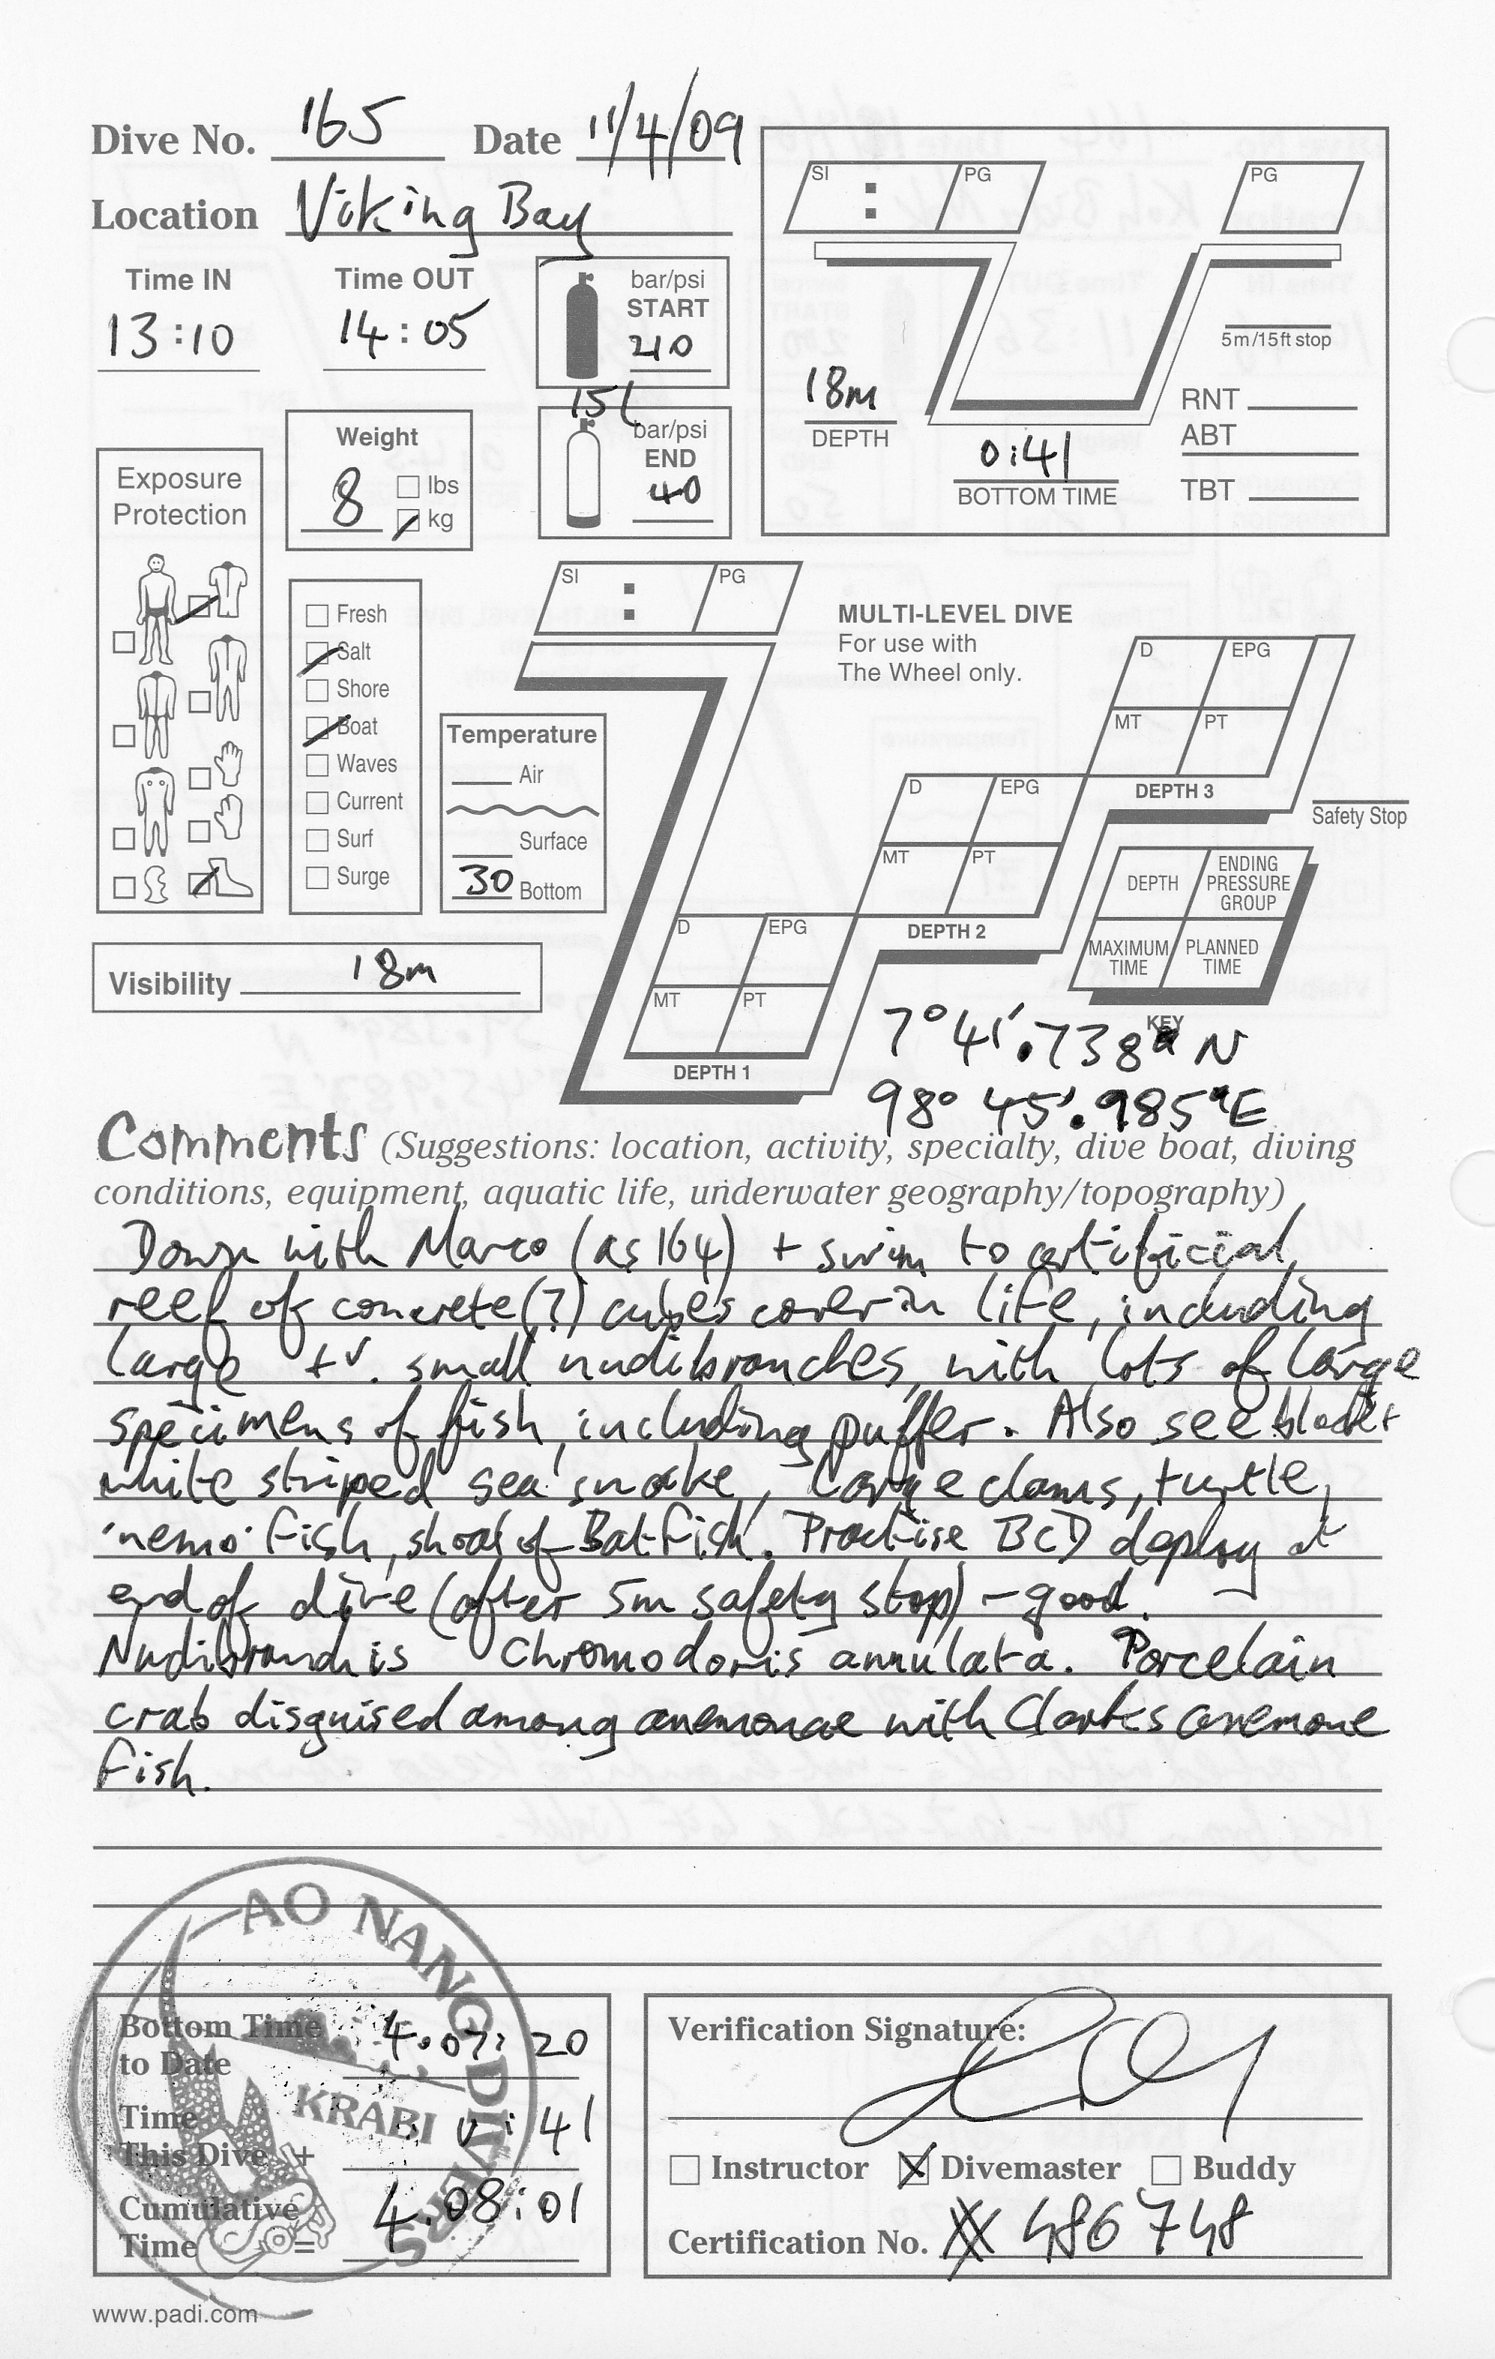 Dive No. 165 Date 11/4/09
Location Viking Bay
Time IN 13:10
Time OUT 14:05
bar/psi
START
210
15L
bar/psi
END
40
SI : PG
PG
5m/15ft stop
18m
DEPTH
0:41
BOTTOM TIME
RNT
ABT
TBT
Weight
8
lbs
kg
Exposure
Protection
Fresh
Salt
Shore
Boat
Waves
Current
Surf
Surge
Temperature
Air
Surface
30 Bottom
Visibility 18m
SI : PG
MULTI-LEVEL DIVE
For use with
The Wheel only.
D EPG
MT PT
DEPTH 3
Safety Stop
D EPG
MT PT
DEPTH 2
D EPG
MT PT
DEPTH 1
DEPTH
ENDING
PRESSURE
GROUP
MAXIMUM
TIME
PLANNED
TIME
KEY
7° 41'.738 N
98° 45'.985 E
Comments (Suggestions: location, activity, specialty, dive boat, diving
conditions, equipment, aquatic life, underwater geography/topography)
Down with Marco (as 164) + swim to artificial
reef of concrete(?) cubes cover in life, including
large + v. small nudibranches, with lots of large
specimens of fish, including puffer. Also see black +
white striped sea snake, large clams, turtle,
'nemo' fish, shoal of Batfish. Practise BCD deploy at
end of dive (after 5m safety stop) - good.
Nudibranch is Chromodoris annulata. Porcelain
crab disguised among anemonae with Clarks anemone
fish.
AO NANG DIVERS
KRABI
Bottom Time
to Date 4.07:20
Time
This Dive + 0:41
Cumulative
Time = 4.08:01
Verification Signature:
Instructor Divemaster Buddy
Certification No. 486748
www.padi.com